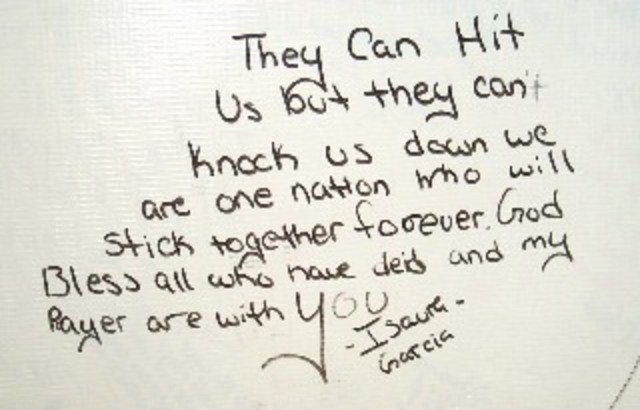 They Can Hit
Us but they can't
knock us down we
are one nation who will
stick together forever. God
Bless all who have deid and my
Prayer are with you
- Isaura -
Garcia